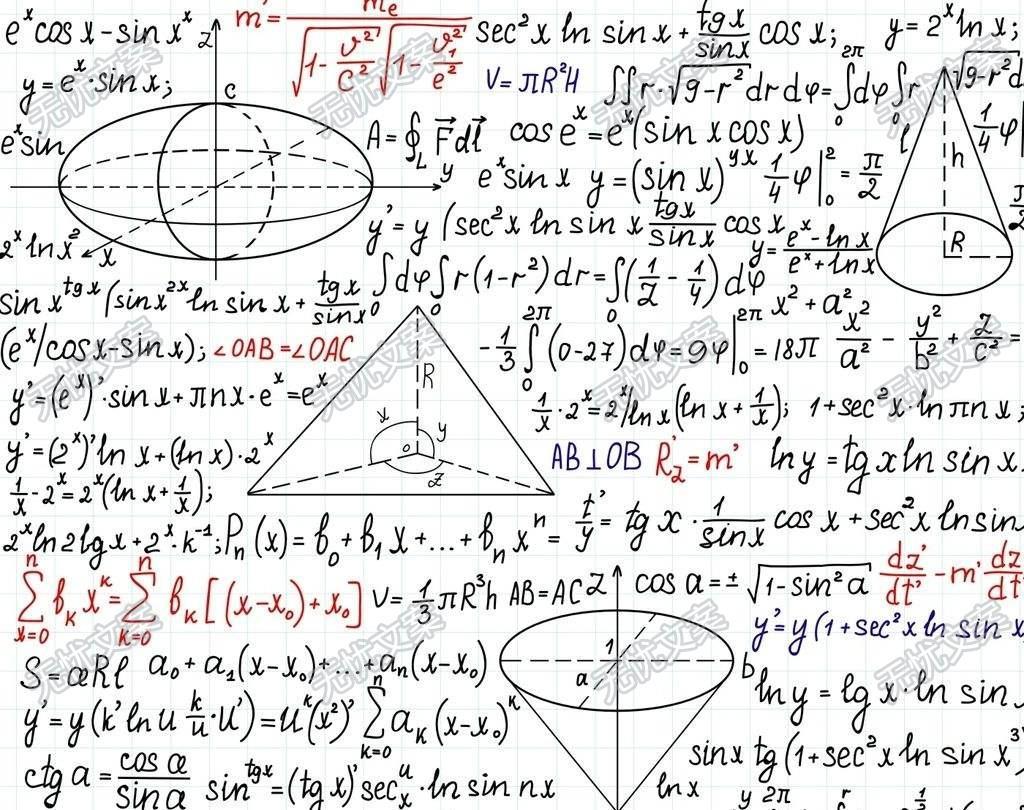 e^x cos x - sin x^x
z
m' = m_e / √(1 - v²/c²) √(1 - v₁²/e²)
sec² x ln sin x + tg x / sin x cos x;
y = 2^x ln x;
y = e^x · sin x;
c
V = πR²H
∫∫ r · √(9-r²) dr dφ = ∫₀^2π dφ ∫₀ r √(9-r²) d
e^x sin
A = ∮_L F⃗ dl⃗
cos e^x = e^x (sin x cos x)
h
1/4 φ|
y
e^x sin x y = (sin x)^yx 1/4 φ|₀² = π/2
2^x ln x²
x
y' = y (sec² x ln sin x tg x / sin x cos x
y = e^x - ln x / e^x + ln x
R
π/2
∫₀ dφ ∫₀ r (1-r²) dr = ∫₀ (1/2 - 1/4) dφ
sin x^tg x (sin x^2x ln sin x + tg x / sin x
x² + a²
x²/a² - y²/b² + z/c² =
(e^x / cos x - sin x);
∠OAB = ∠OAC
o
R
- 1/3 ∫₀^2π (0-27) dφ = 9φ|₀^2π = 18π
y' = (e^x)' · sin x + πn x · e^x = e^x
x
y
o
z
1/x · 2^x = 2^x / ln x (ln x + 1/x);
1 + sec² x · ln πn x;
y' = (2^x)' ln x + (ln x) · 2^x
AB ⊥ OB
R₂' = m'
ln y = tg x ln sin x.
1/x - 2^x = 2^x (ln x + 1/x);
2^x ln 2 lg x + 2^x · k^-1;
P_n (x) = b₀ + b₁ x + ... + b_n x^n =
t'/y = tg x · 1/sin x cos x + sec² x ln sin
Σ_{x=0}^n b_k x^k = Σ_{k=0}^n b_k [(x-x₀) + x₀]
V = 1/3 πR³h
AB = AC
z
cos a = ± √(1 - sin² a)
dz'/dt' - m' dz/dt
1
a
b
y' = y (1 + sec² x ln sin x
S = æRl
a₀ + a₁ (x-x₀) + ... + a_n (x-x₀)
ln y = lg x · ln sin
y' = y (k' ln u k/u · u') = u^k (x²)' Σ_{k=0}^n a_k (x-x₀)^k
sin x tg (1 + sec² x ln sin x³
ctg a = cos æ / sin a
sin^tg x = (tg x)' sec_x^u · ln sin nx
ln x
y 2π
无忧文案
无忧文案
无忧文案
无忧文案
无忧文案
无忧文案
无忧文案
无忧文案
无忧文案